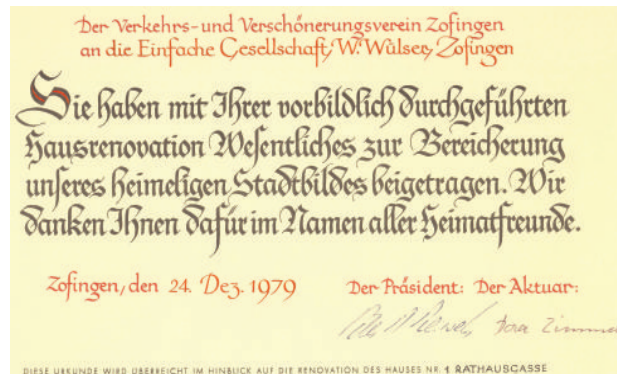 Der Verkehrs- und Verschönerungsverein Zofingen
an die Einfache Gesellschaft, W. Wülser, Zofingen
Sie haben mit Ihrer vorbildlich durchgeführten
Hausrenovation Wesentliches zur Bereicherung
unseres heimeligen Stadtbildes beigetragen. Wir
danken Ihnen dafür im Namen aller Heimatfreunde.
Zofingen, den 24. Dez. 1979 Der Präsident: Der Aktuar:
DIESE URKUNDE WIRD ÜBERREICHT IM HINBLICK AUF DIE RENOVATION DES HAUSES NR. 1 RATHAUSGASSE